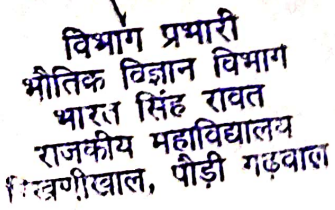 विभाग प्रभारी
भौतिक विज्ञान विभाग
भारत सिंह रावत
राजकीय महाविद्यालय
रिखणीखाल, पौड़ी गढ़वाल